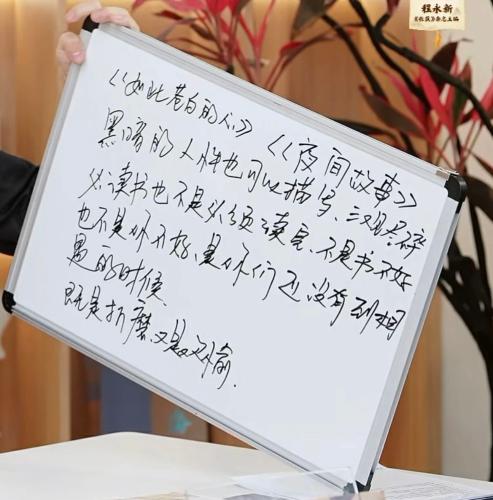 程永新
《收获》杂志主编
《如此苍白的心》《夜间故事》
黑暗的人性也可以描写、三观尽碎
必读书也不是必须读完、不是书不好
也不是你不好、是你们还没有到相
遇的时候
既是折磨,又是